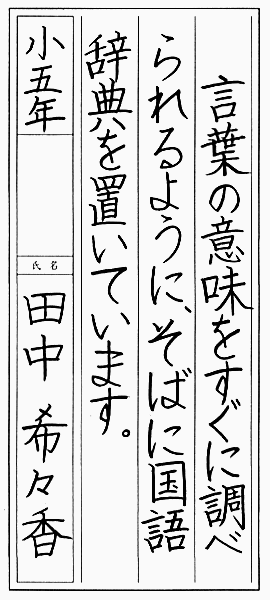 言葉の意味をすぐに調べ
られるように、そばに国語
辞典を置いています。
小五年
氏名
田中 希々香